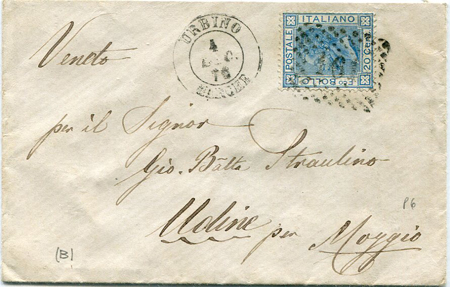 URBINO
4
DIC.
76
MERCER
ITALIANO
POSTALE
20 Cent
Fco BOLLO
Veneto
per il Signor
Gio. Batta Straulino
Udine per Moggio
P6
(B)